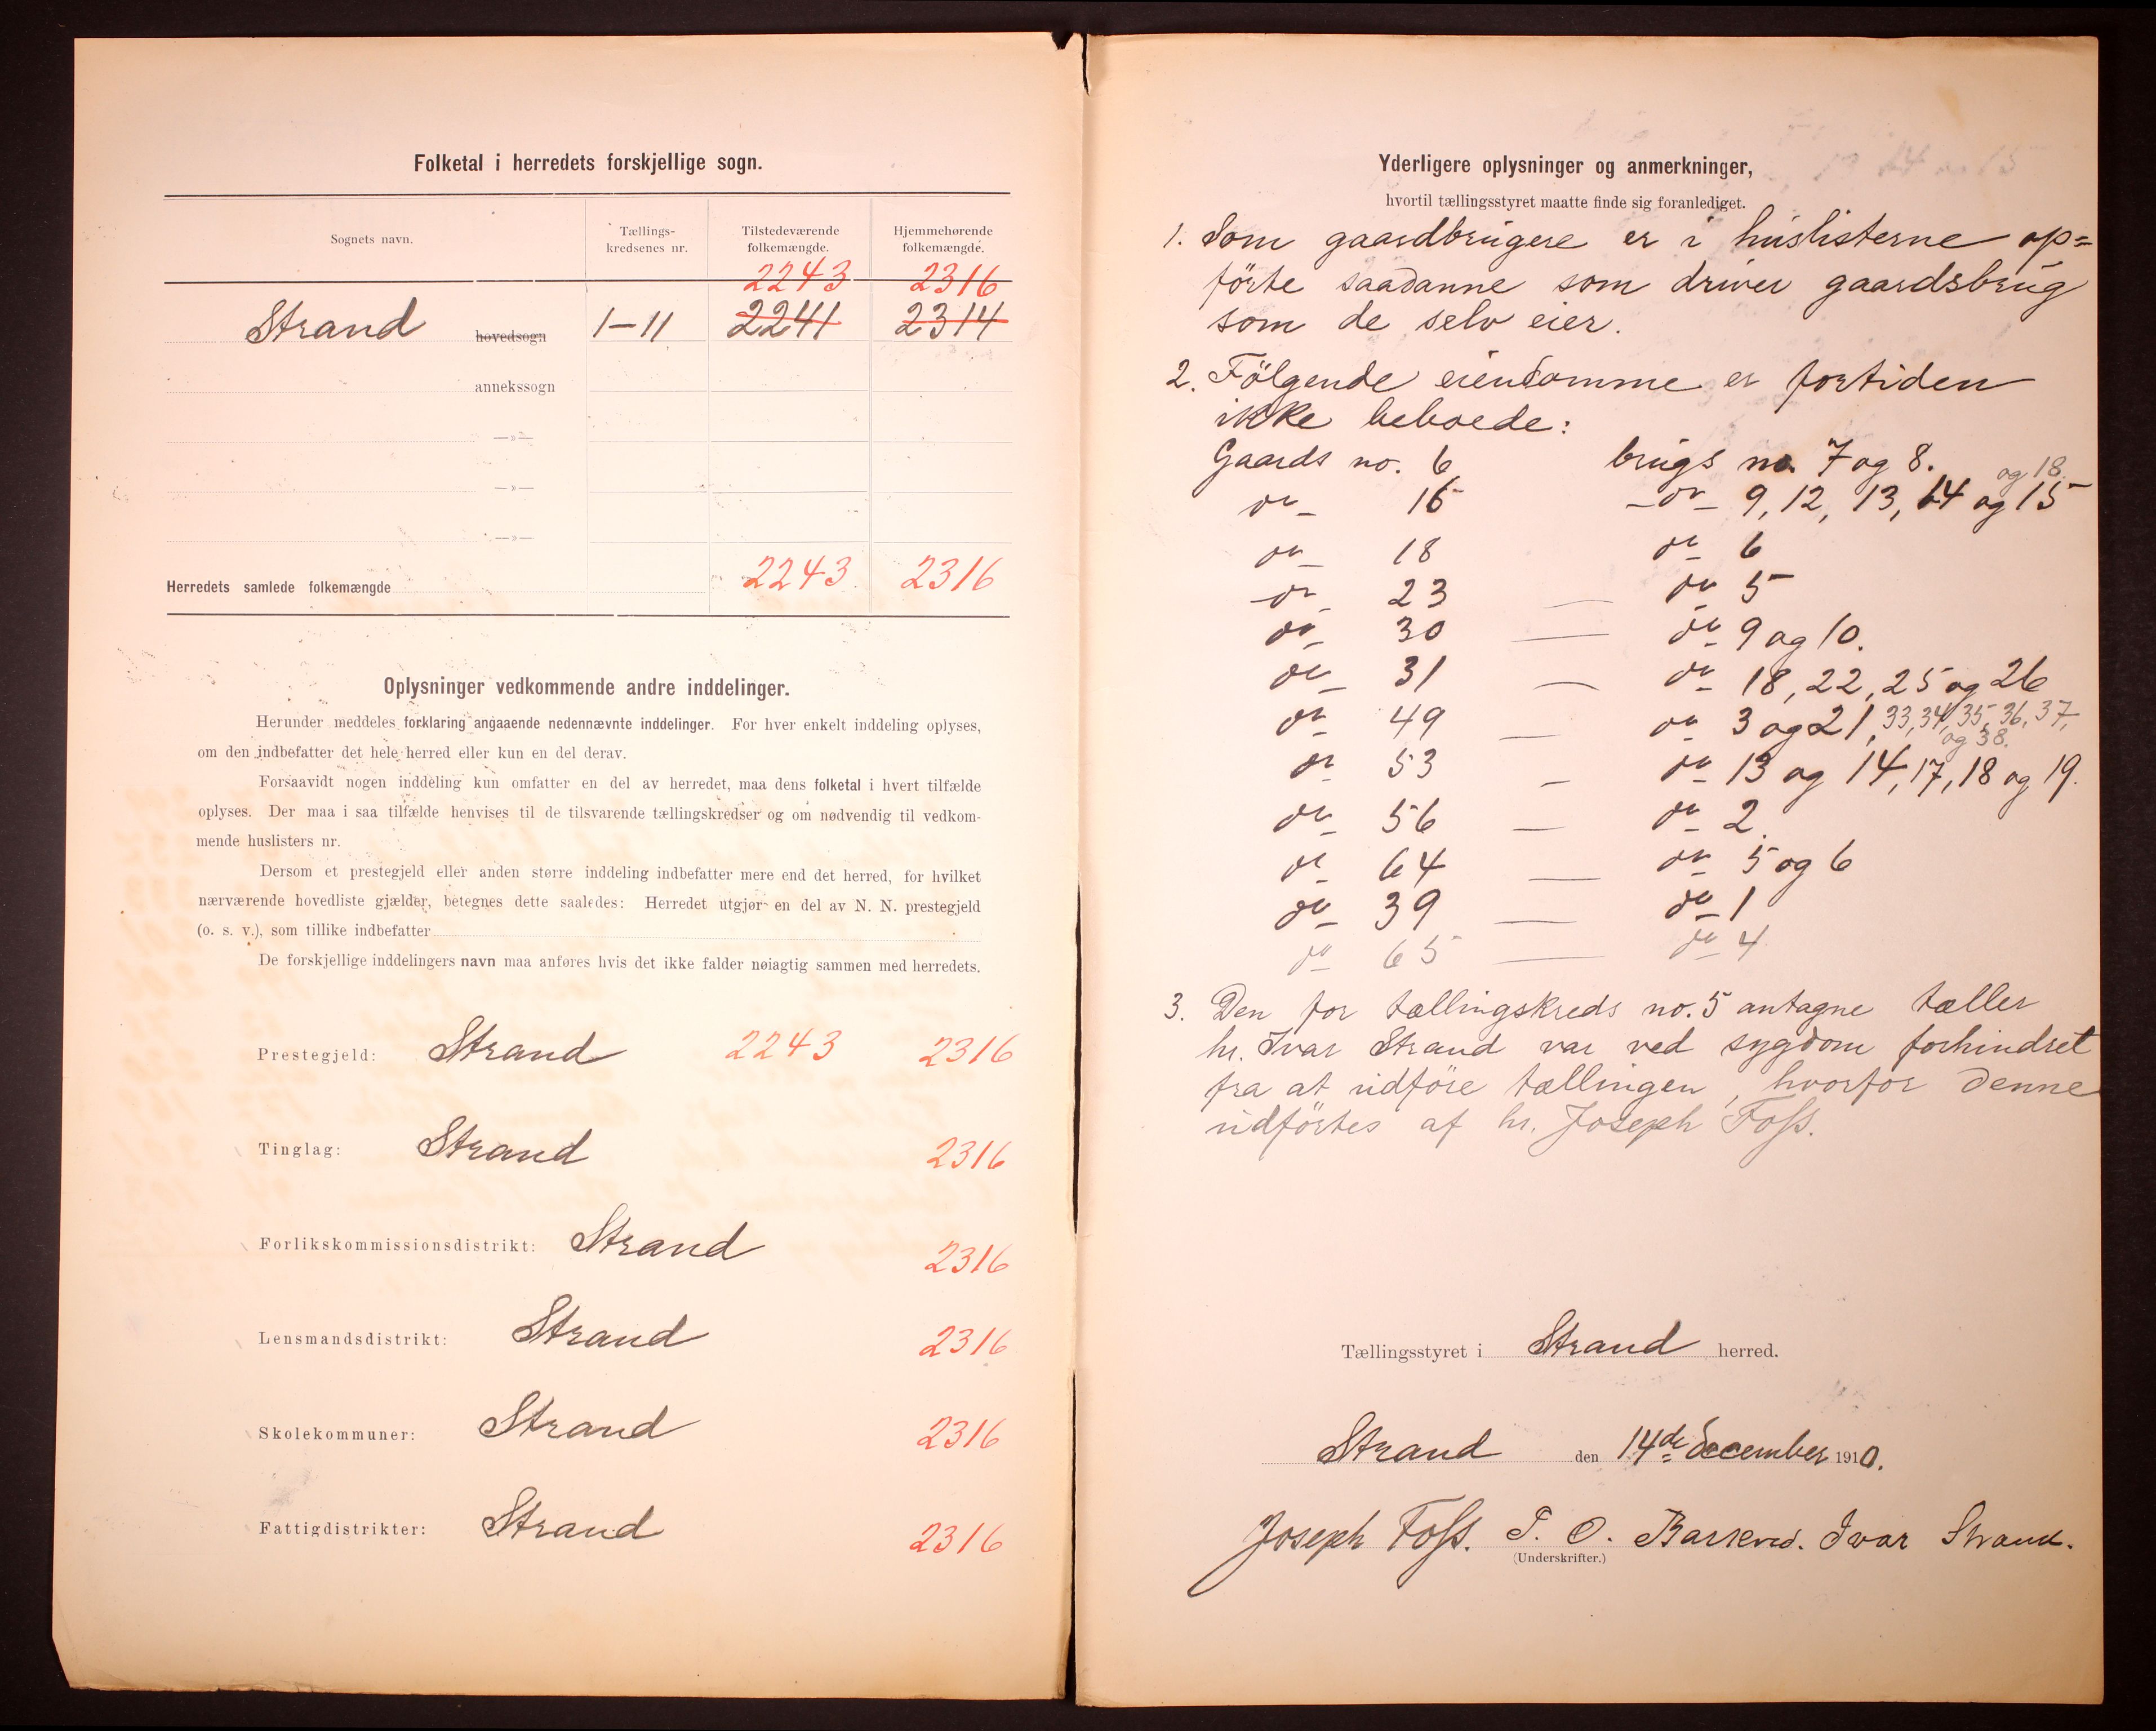 Folketal i herredets forskjellige sogn.
Sognets navn.
Tællings-
kredsenes nr.
Tilstedeværende
folkemængde.
Hjemmehørende
folkemængde.
2243 2316
Strand hovedsogn 1-11 2241 2314
annekssogn
—»—
—»—
—»—
Herredets samlede folkemængde 2243 2316
Oplysninger vedkommende andre inddelinger.
Herunder meddeles forklaring angaaende nedennævnte inddelinger. For hver enkelt inddeling oplyses,
om den indbefatter det hele herred eller kun en del derav.
Forsaavidt nogen inddeling kun omfatter en del av herredet, maa dens folketal i hvert tilfælde
oplyses. Der maa i saa tilfælde henvises til de tilsvarende tællingskredser og om nødvendig til vedkom-
mende huslisters nr.
Dersom et prestegjeld eller anden større inddeling indbefatter mere end det herred, for hvilket
nærværende hovedliste gjælder, betegnes dette saaledes: Herredet utgjør en del av N. N. prestegjeld
(o. s. v.), som tillike indbefatter
De forskjellige inddelingers navn maa anføres hvis det ikke falder nøiagtig sammen med herredets.
Prestegjeld: Strand 2243 2316
Tinglag: Strand 2316
Forlikskommissionsdistrikt: Strand 2316
Lensmandsdistrikt: Strand 2316
Skolekommuner: Strand 2316
Fattigdistrikter: Strand 2316
Yderligere oplysninger og anmerkninger,
hvortil tællingsstyret maatte finde sig foranlediget.
1. Som gaardbrugere er i huslisterne op=
førte saadanne som driver gaardsbrug
som de selv eier.
2. Følgende eiendomme er fortiden
ikke beboede:
Gaards no. 6 brugs no. 7 og 8.
og 18.
do 16 do 9, 12, 13, 14 og 15
do 18 do 6
do 23 do 5
do 30 do 9 og 10.
do 31 do 18, 22, 25 og 26
do 49 do 3 og 21, 33, 34, 35, 36, 37,
og 38.
do 53 do 13 og 14, 17, 18 og 19.
do 56 do 2.
do 64 do 5 og 6
do 39 do 1
do 65 do 4
3. Den for tællingskreds no. 5 antagne tæller
hr. Ivar Strand var ved sygdom forhindret
fra at udføre tællingen, hvorfor denne
udførtes af hr. Joseph Foss.
Tællingsstyret i Strand herred.
Strand den 14de december 1910.
Joseph Foss. T. O. Ivar Strand.
(Underskrifter.)